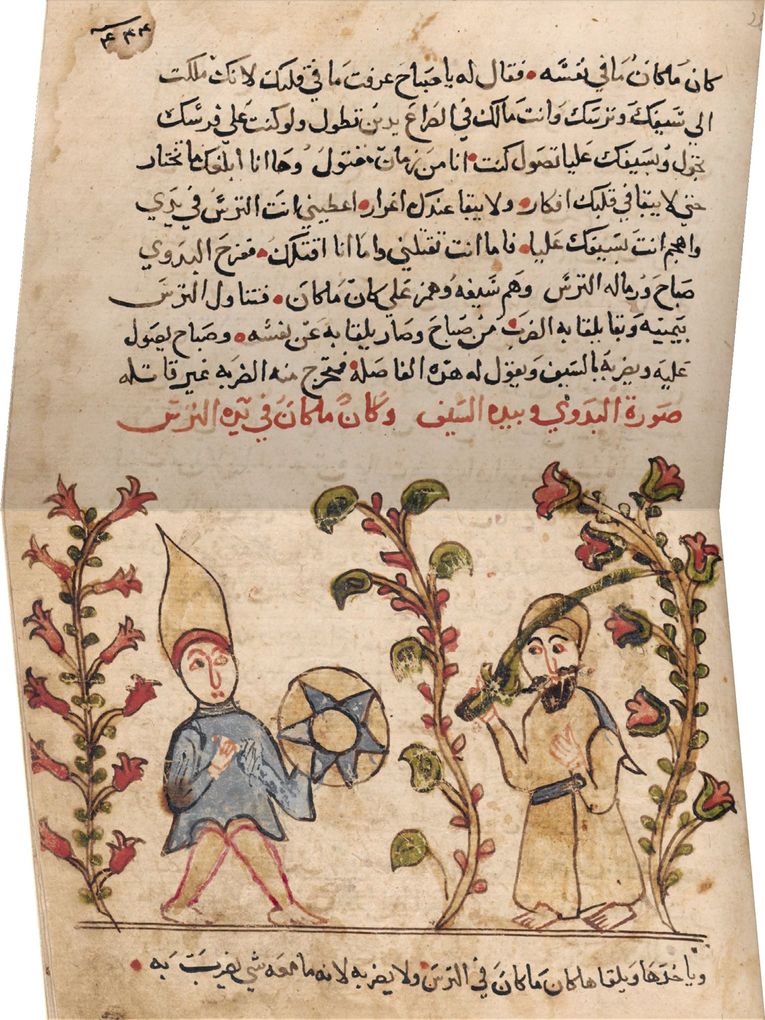 ٤٤٤
كان ماكان ما في نفسه • فقال له يا صباح عرفت ما في قلبك لانك ملكت
الي سيفك وترسك وانت مالك في الصراع يدين تطول ولو كنت علي فرسك
تجول وبسيفك عليا تصول كنت انا من زمان مقتول وها انا ابلغك ما تختار
حتي لا يبقا في قلبك افكار • ولا يبقا عندك اغرار • اعطيني انت الترس في يدي
واهجم انت بسيفك عليا • فاما انت تقتلني واما انا اقتلك • ففرح البدوي
صباح ورماله الترس وهم سيفه وهمز علي كان ماكان • فتناول الترس
بيمينه وبقا يلقا به الضرب من صباح وصار يلقا به عن نفسه • وصباح يصول
عليه ويضربه بالسيف ويقول له هده الفاصله • فتخرج منه الضربه غير قاتله
صورة البدوي وبيده السيف وكان ماكان في يده الترس
وياخدها ويلقاها كان ماكان في الترس ولا يضربه لانه ما معه شي يضرب به •